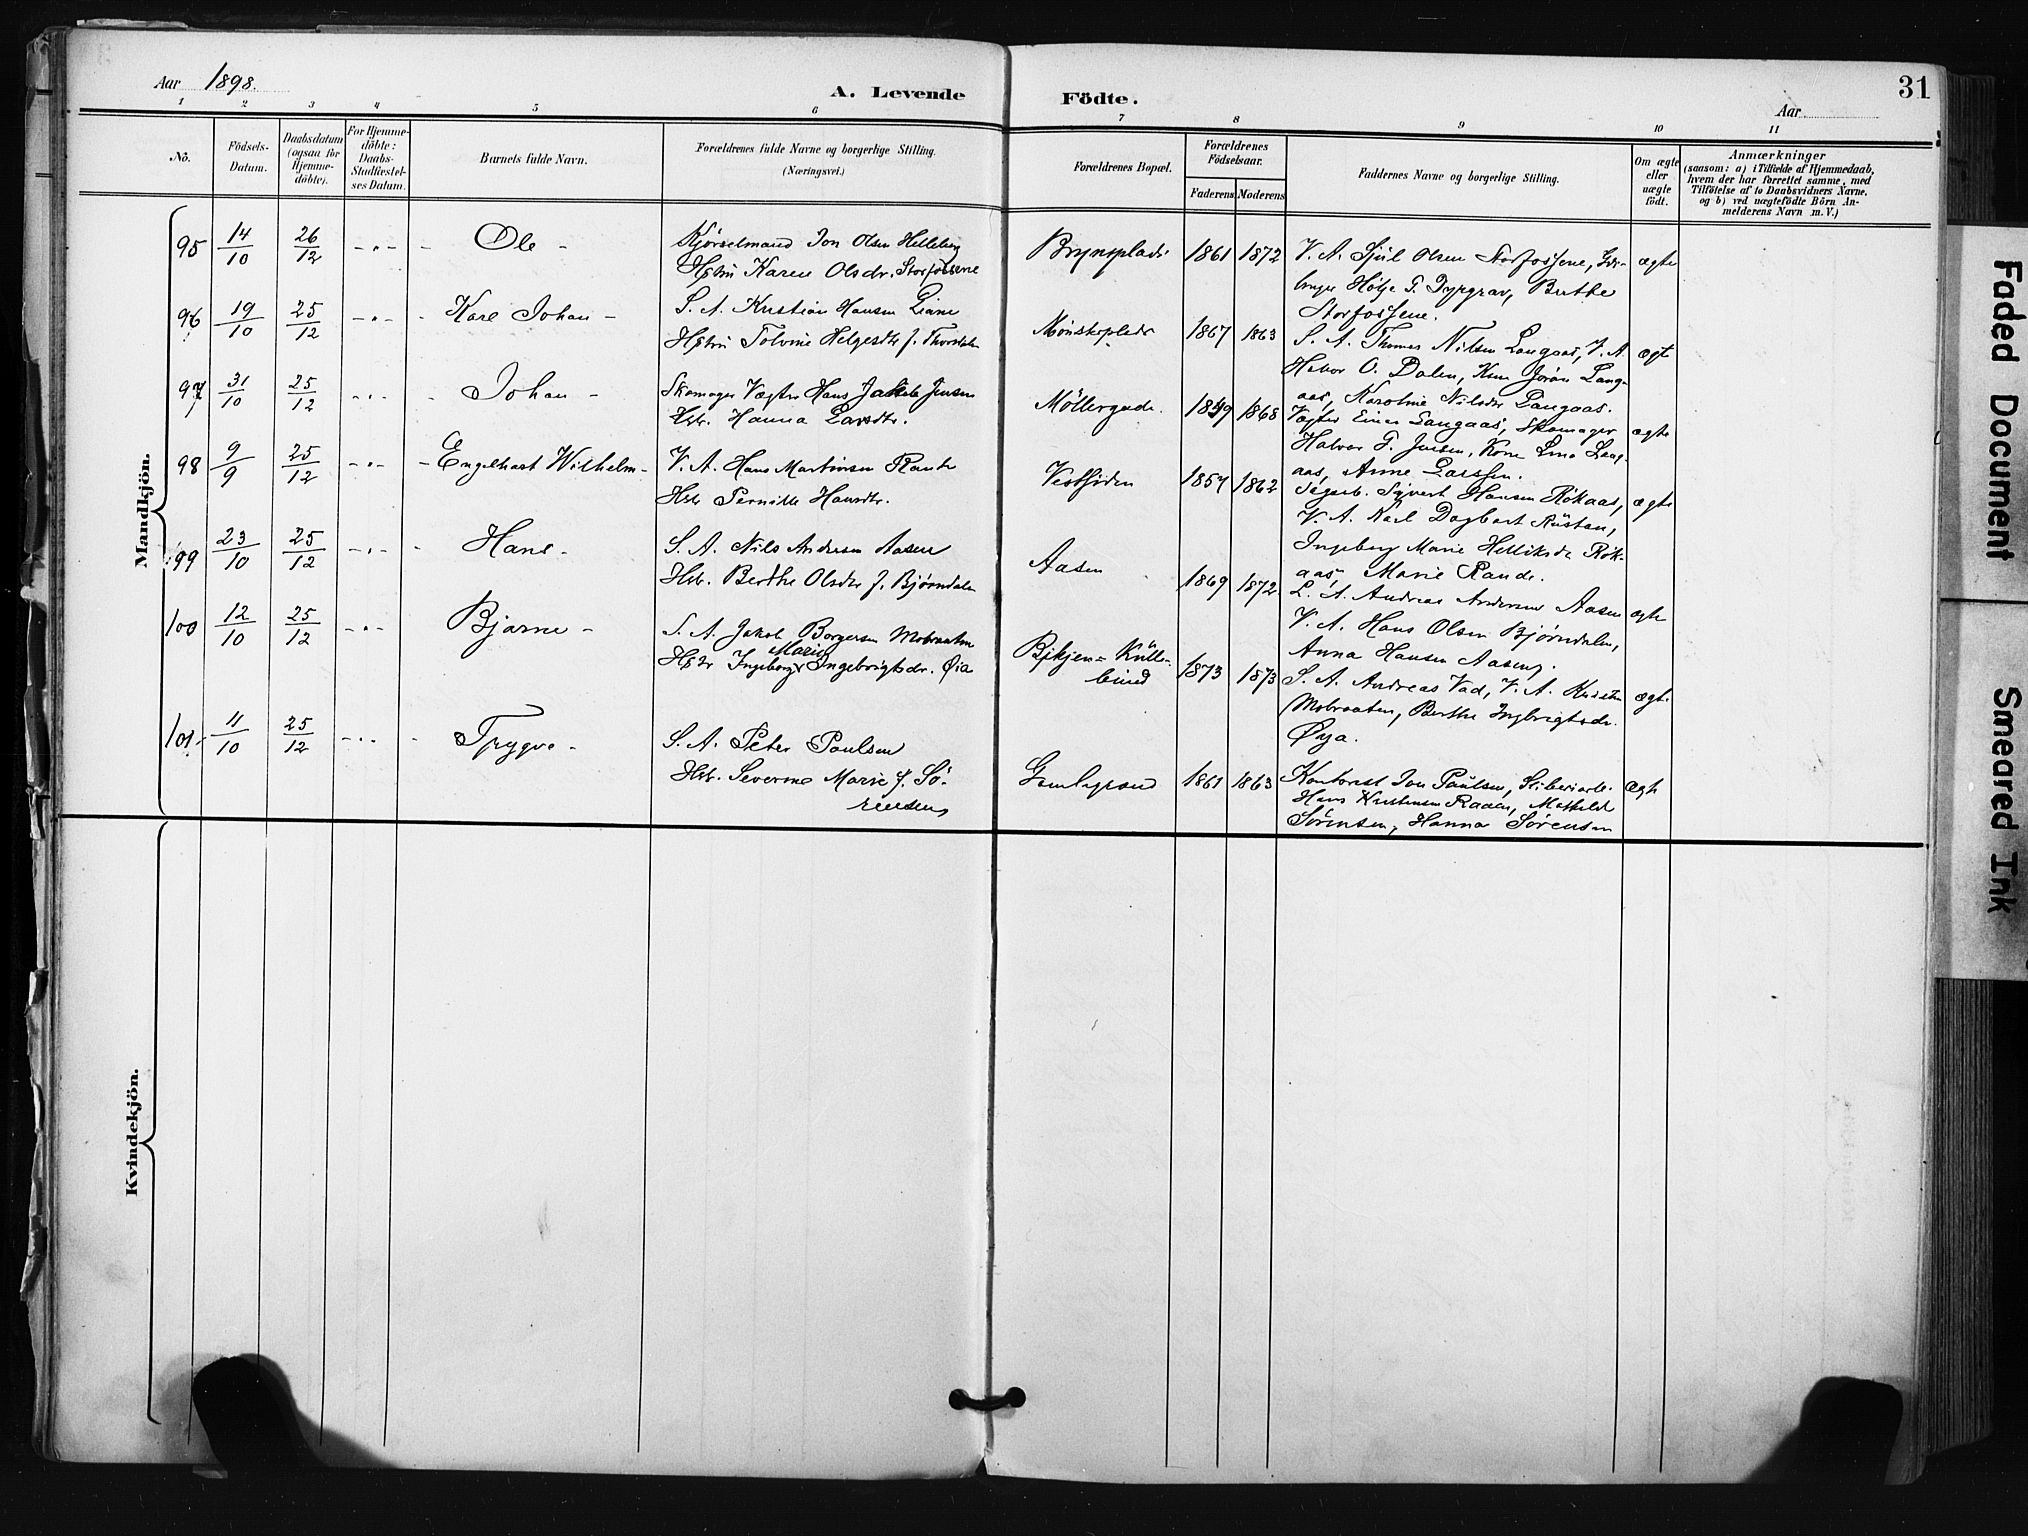 Aar 1898.
A. Levende Födte.
Aar
31
1 2 3 4 5 6 7 8 9 10 11
No.
Födsels-Datum.
Daabsdatum (ogsaa for Hjemme-döbte).
For Hjemme-döbte: Daabs-Stadfæstel-ses Datum.
Barnets fulde Navn.
Forældrenes fulde Navne og borgerlige Stilling.
(Næringsvei.)
Forældrenes Bopæl.
Forældrenes Födselsaar.
Faderens Moderens
Faddernes Navne og borgerlige Stilling.
Om ægte eller uægte födt.
Anmærkninger
(saasom: a) i Tilfælde af Hjemmedaab,
hvem der har forrettet samme, med
Tilföielse af to Daabsvidners Navne,
og b) ved uægtefödte Börn An-
melderens Navn m. V.)
Mandkjön.
95 14/10 26/12 - " - - Ole -
Kjørselmand Jon Olsen Helleberg
Hstr Karen Olsdr. Storfossene
1861 1872
V. A. Sjul Olsen Storfossene,
Høljé T. Dyrgrav, Berthe
Storfossene.
ægte
96 19/10 25/12 - " - Karl Johan -
S. A. Kristian Hansen Liane
Tolvine Helgesdtr f.
1867 1863
S. A. Thomas Nilsen Langaas, V. A.
Halvor O. Dalen, Kone Jøran Lang-
aas, Karoline Nilsdtr Langaas.
ægte
97 31/10 25/12 - " - - Johan -
Skomager Vægter Hans Jakob Jensen
Hst. Hanna Larsdtr.
Möllergade. 1868
Vægter Einar Langaas, Skomager
Halvor T. Jensen, Kone Lina Lang-
aas, Anne Larssen.
ægte
98 9/9 25/12 - " - - Engelhart Wilhelm -
V. A. Hans Martinsen Rande
Hst. Pernille Hansdtr.
Vestsiden 1857 1862
Sigvert Hansen Rökaas,
V. A. Karl Dagbart Rustan,
Ingeborg Marie Helliksdr Rök-
aas, Marie Rande.
ægte
99 23/10 25/12 - " - - Hans -
S. A. Nils Andersen Aasen
Hst. Berthe Olsdtr f. Bjørndalen
Aasen 1869 1872
S. A. Andreas Andersen Aasen
V. A. Hans Olsen Bjørndalen,
Anna Hansen Aasen.
ægte
100 12/10 25/12 - " - Bjarne -
S. A. Jakob Borgersen Mobraaten
Hstr Ingeborg Marie Ingebrigtsdr. Øia
1873 1873
S. A. Andreas Vad, V. A. Kristen
Mobraaten, Berthe Ingbrigtsdr.
Øya.
ægte
101. 11/10 25/12 - " - - Trygve -
S. A. Peter Paulsen
Hst. Severine Marie f. Sö-
rensen
Gamlegrend 1861 1863
Kontorist Jon Paulsen,
Hans Kristensen Raaen, Mathilde
Sørensen, Hanna Sørensen
ægte
Kvindekjön.
Faded Document
Smeared Ink